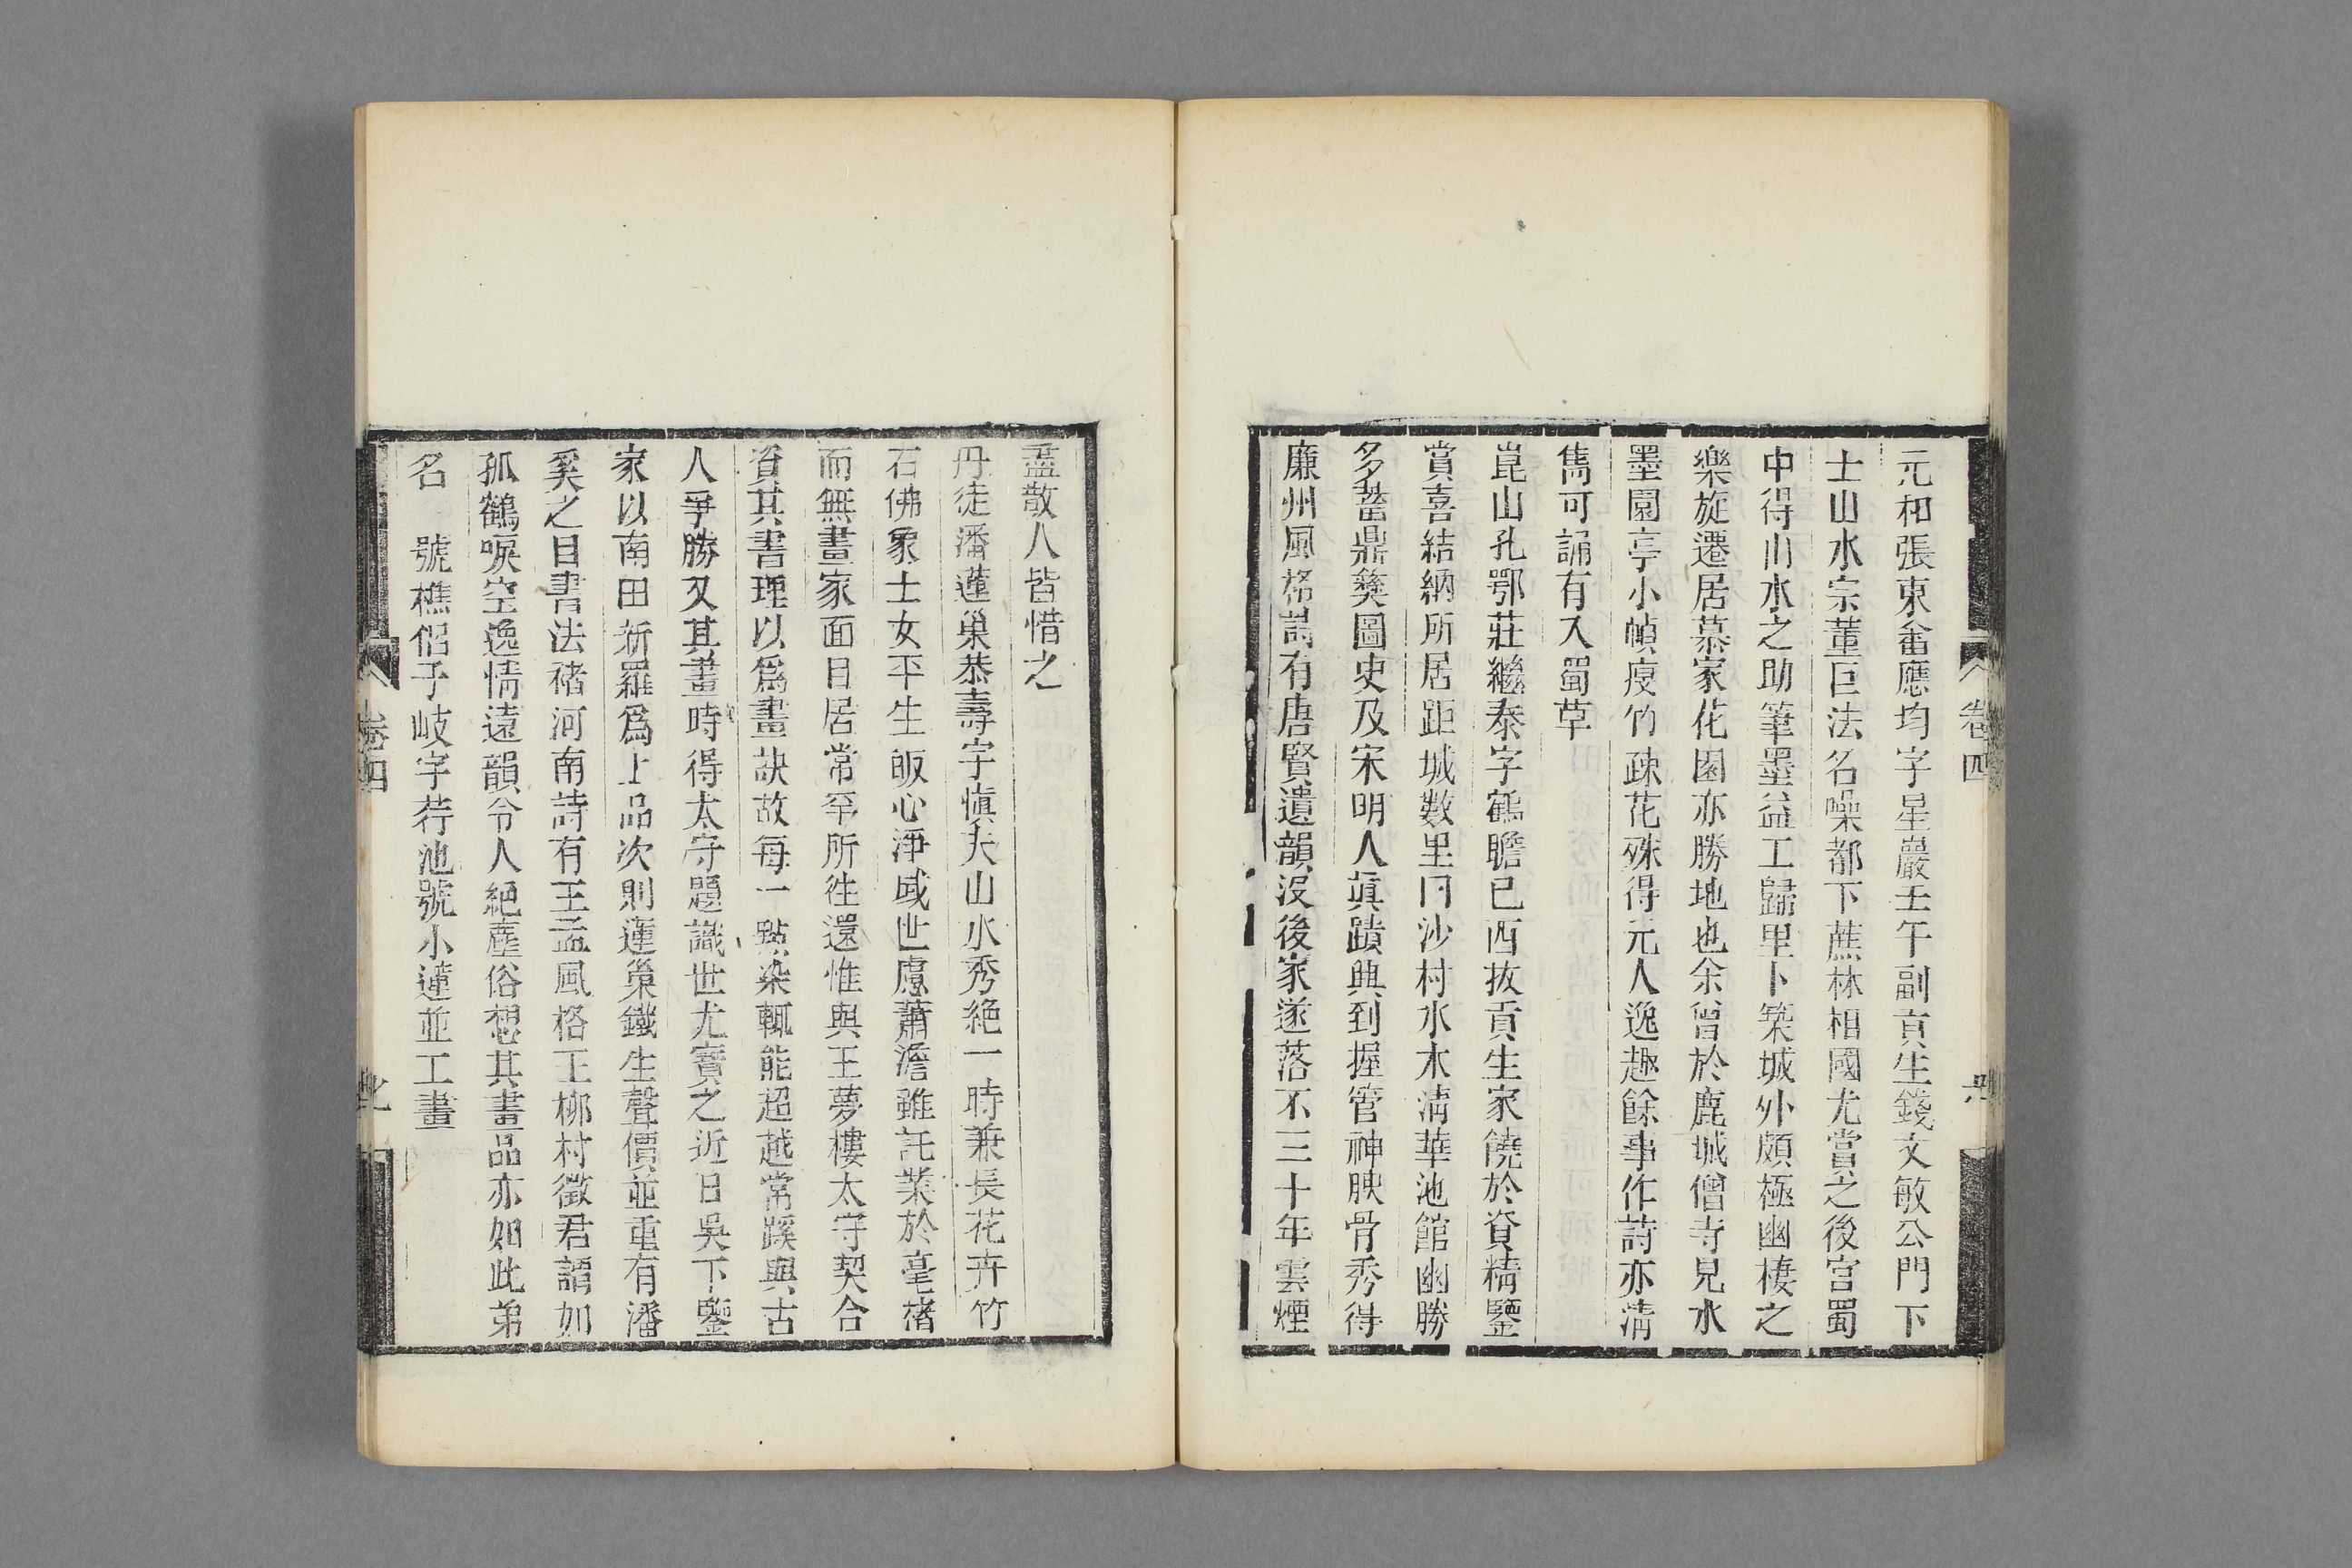 元和張東畬應均字星巖壬午副貢生錢文敏公門下
士山水宗董巨法名噪都下蔗林相國尤賞之後宦蜀
中得山水之助筆墨益工歸里卜築城外頗極幽棲之
樂旋遷居慕家花園亦勝地也余曾於鹿城僧寺見水
墨園亭小幀瘦竹疎花殊得元人逸趣餘事作詩亦清
雋可誦有入蜀草
崑山孔鄂莊繼泰字鶴瞻己酉拔貢生家饒於資精鑒
賞喜結納所居距城數里曰沙村水木清華池館幽勝
多蓄鼎彝圖史及宋明人眞蹟興到握管神腴骨秀得
廉州風格詩有唐賢遺韻沒後家遂落不三十年雲煙
盡散人皆惜之
丹徒潘蓮巢恭壽字愼夫山水秀絶一時兼長花卉竹
石佛象士女平生皈心淨域世慮蕭澹雖託業於毫楮
而無畫家面目居常罕所徃還惟與王夢樓太守契合
資其書理以爲畫訣故每一點染輒能超越常蹊與古
人爭勝又其畫時得太守題識世尤寶之近日吳下鑒
家以南田新羅爲上品次則蓮巢鐵生聲價並重有潘
奚之目書法褚河南詩有王孟風格王栁村徵君謂如
孤鶴唳空逸情遠韻令人絶塵俗想其畫品亦如此弟
名　號樵侶子岐字荇池號小蓮並工畫
卷四
卷四